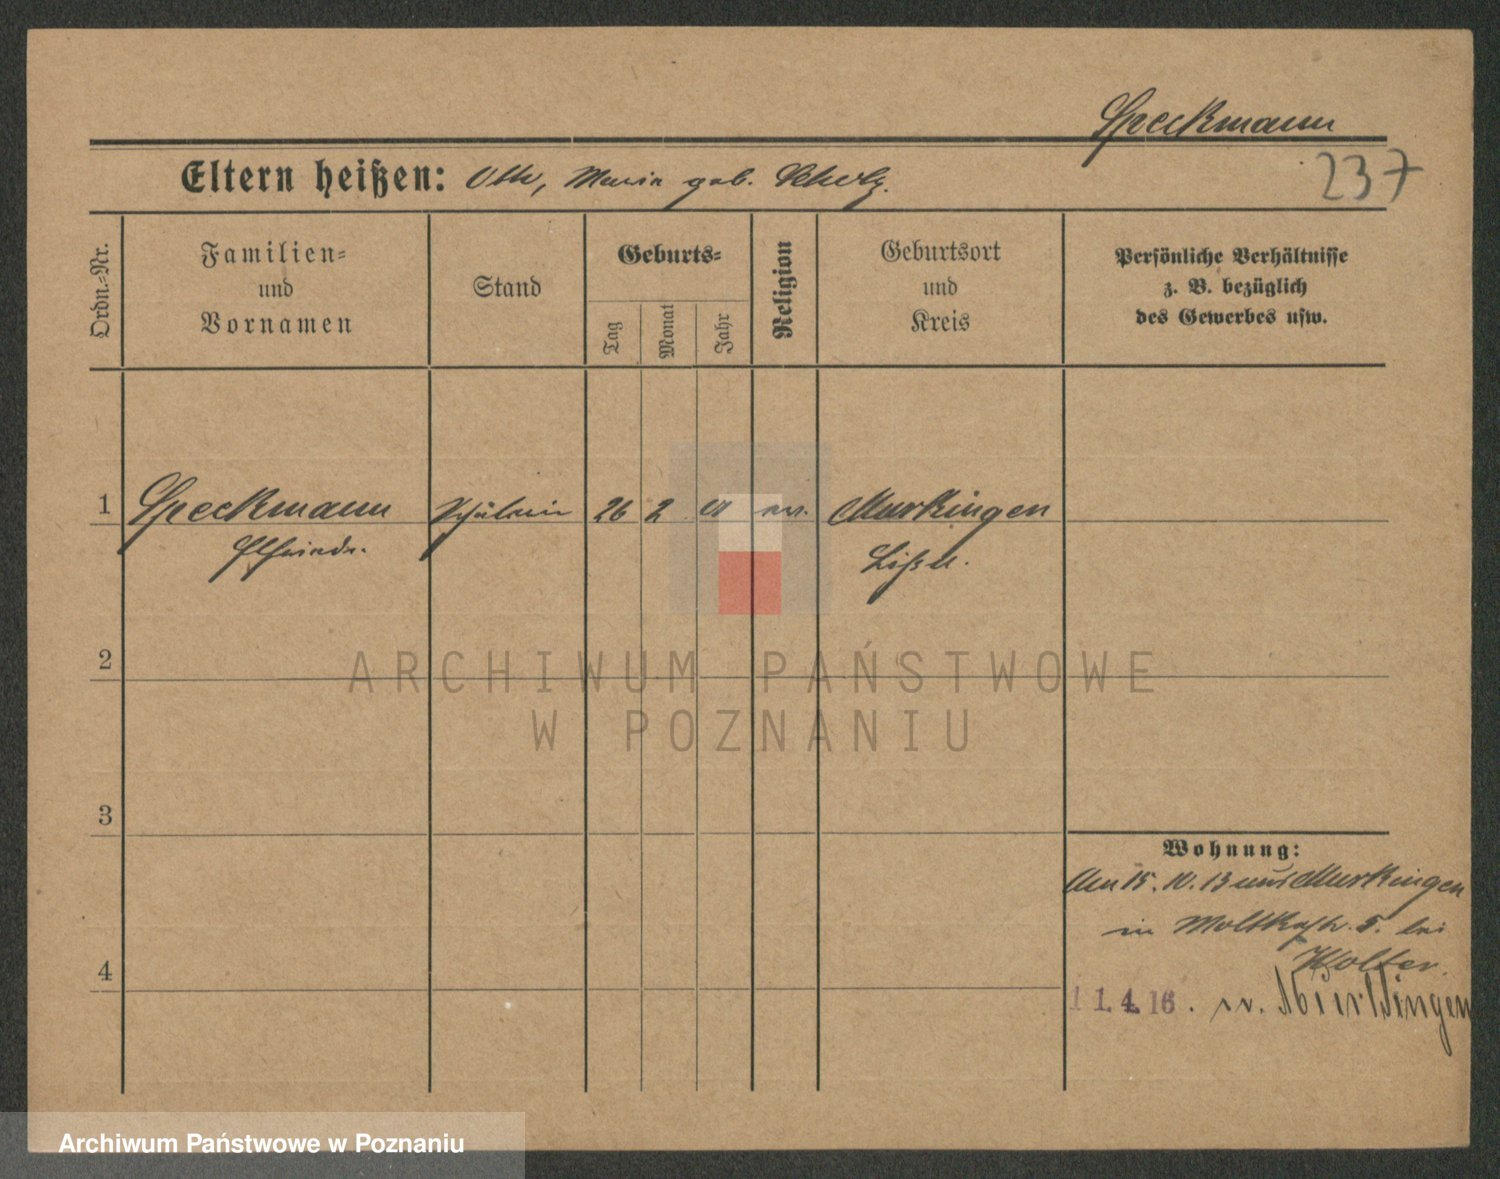 Speckmann
237
Eltern heißen: Otto, Maria geb. Scholz.
Ordn.-Nr.
Familien-
und
Vornamen
Stand
Geburts-
Tag
Monat
Jahr
Religion
Geburtsort
und
Kreis
Persönliche Verhältnisse
z. B. bezüglich
des Gewerbes usw.
1 Speckmann Schülerin 26 2 ev. Murkingen
Elfriede. Lissa.
2
ARCHIWUM PAŃSTWOWE
W POZNANIU
3
Wohnung:
Am 15. 10. 13 aus Murkingen
in Moltkestr. 5. bei
4
11.4.16. n. Murkingen
Archiwum Państwowe w Poznaniu